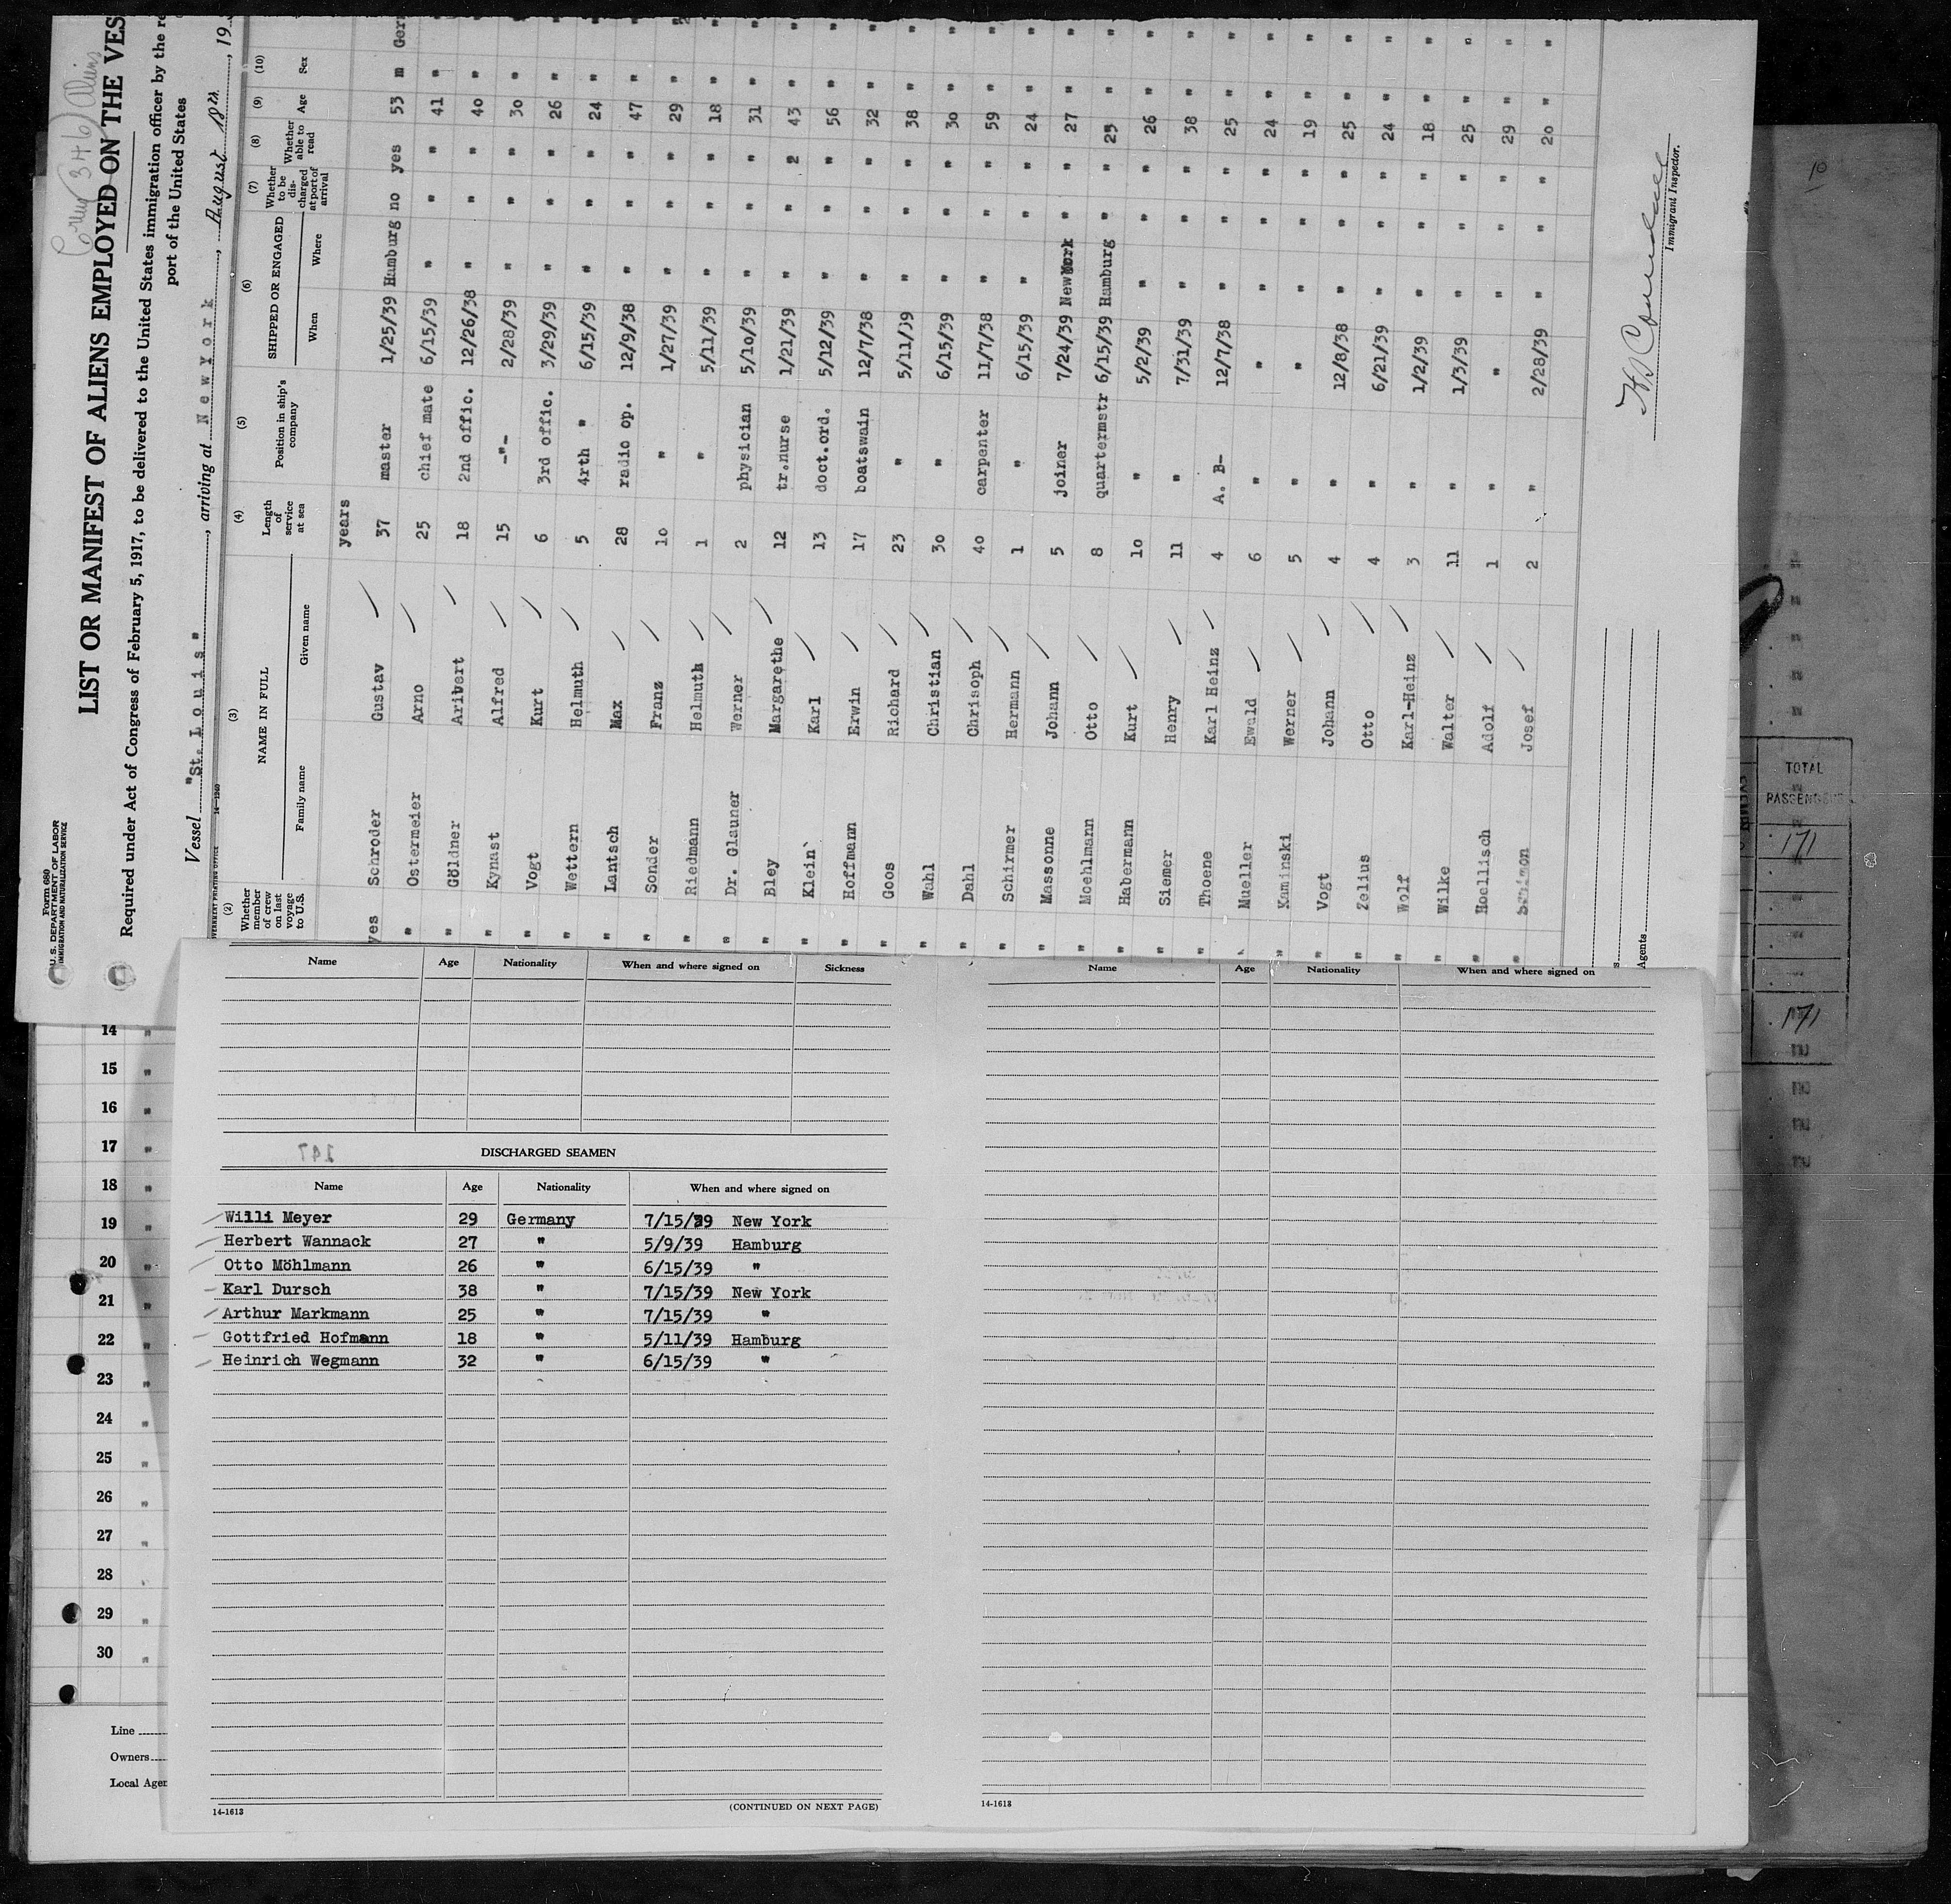 Form 680
U. S. DEPARTMENT OF LABOR
IMMIGRATION AND NATURALIZATION SERVICE
LIST OR MANIFEST OF ALIENS EMPLOYED ON THE VES
Required under Act of Congress of February 5, 1917, to be delivered to the United States immigration officer by the re
port of the United States
Vessel "St. Louis", arriving at New York, August 18th, 19
(2) (3) (4) (5) (6) (7) (8) (9) (10)
Whether member of crew on last voyage to U.S. NAME IN FULL Family name Given name Length of service at sea Position in ship's company SHIPPED OR ENGAGED When Where Whether to be discharged at port of arrival Whether able to read Age Sex
years
yes Schroder Gustav 37 master 1/25/39 Hamburg no yes 53 m Ger
" Ostermeier Arno 25 chief mate 6/15/39 " " " 41 " "
" Göldner Aribert 18 2nd offic. 12/26/38 " " " 40 " "
" Kynast Alfred 15 -"- 2/28/39 " " " 30 " "
" Vogt Kurt 6 3rd offic. 3/29/39 " " " 26 " "
" Wettern Helmuth 5 4rth " 6/15/39 " " " 24 " "
" Lantsch Max 28 radio op. 12/9/38 " " " 47 " "
" Sonder Franz 10 " 1/27/39 " " " 29 "
" Riedmann Helmuth 1 " 5/11/39 " " " 18 " "
" Dr. Glauner Werner 2 physician 5/10/39 " " " 31 " "
" Bley Margarethe 12 tr.nurse 1/21/39 " " " 43 " "
" Klein Karl 13 doct.ord. 5/12/39 " " " 56 " "
" Hoffmann Erwin 17 boatswain 12/7/38 " " " 32 " "
" Goos Richard 23 " 5/11/39 " " " 38 " "
" Wahl Christian 30 " 6/15/39 " " " 30 " "
" Dahl Chrisoph 40 carpenter 11/7/38 " " " 59 " "
" Schirmer Hermann 1 " 6/15/39 " " " 24 " "
" Massonne Johann 5 joiner 7/24/39 New York " " 27 " "
" Moehlmann Otto 8 quartermstr 6/15/39 Hamburg " " 25 " "
" Habermann Kurt 10 " 5/2/39 " " " 26 " "
" Siemer Henry 11 " 7/31/39 " " " 38 " "
" Thoene Karl Heinz 4 A. B- 12/7/38 " " " 25 " "
" Mueller Ewald 6 " " " " " 24 " "
" Kaminski Werner 5 " " " " " 19 " "
" Vogt Johann 4 " 12/8/38 " " " 25 " "
" Zelius Otto 4 " 6/21/39 " " " 24 " "
" Wolf Karl-Heinz 3 " 1/2/39 " " " 18 " "
" Wilke Walter 11 " 1/3/39 " " " 25 " "
" Hoellisch Adolf 1 " " " " " 29 " "
" Josef 2 " 2/28/39 " " " 20 " "
Immigrant Inspector.
Agents
Name Age Nationality When and where signed on Sickness
Name Age Nationality When and where signed on
DISCHARGED SEAMEN
Name Age Nationality When and where signed on
Willi Meyer 29 Germany 7/15/39 New York
Herbert Wannack 27 " 5/9/39 Hamburg
Otto Möhlmann 26 " 6/15/39 "
Karl Dursch 38 " 7/15/39 New York
Arthur Markmann 25 " 7/15/39 "
Gottfried Hofmann 18 " 5/11/39 Hamburg
Heinrich Wegmann 32 " 6/15/39 "
14-1613
(CONTINUED ON NEXT PAGE)
14-1613
14 "
15 "
16 "
17 "
18 "
19 "
20 "
21 "
22 "
23 "
24 "
25 "
26 "
27 "
28
29 "
30 "
Line
Owners
Local Agen
10
TOTAL
PASSENGERS
171
171